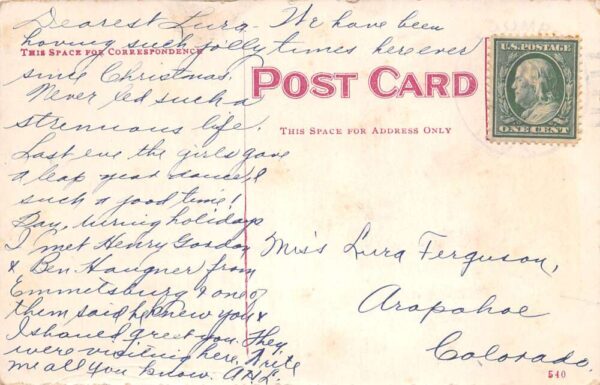 Dearest Lura - We have been
having such jolly times here ever
THIS SPACE FOR CORRESPONDENCE
since Christmas.
Never led such a
strenuous life.
Last eve the girls gave
a leap year dance,
such a good time!
Say, during holidays
I met Henry Gordon
& Ben from
Emmetsburg & one of
them said he knew you &
I should greet you. They
were visiting here. Write
me all you know.
U.S. POSTAGE
ONE CENT
POST CARD
THIS SPACE FOR ADDRESS ONLY
Miss Lura Ferguson,
Arapahoe
Colorado.
540